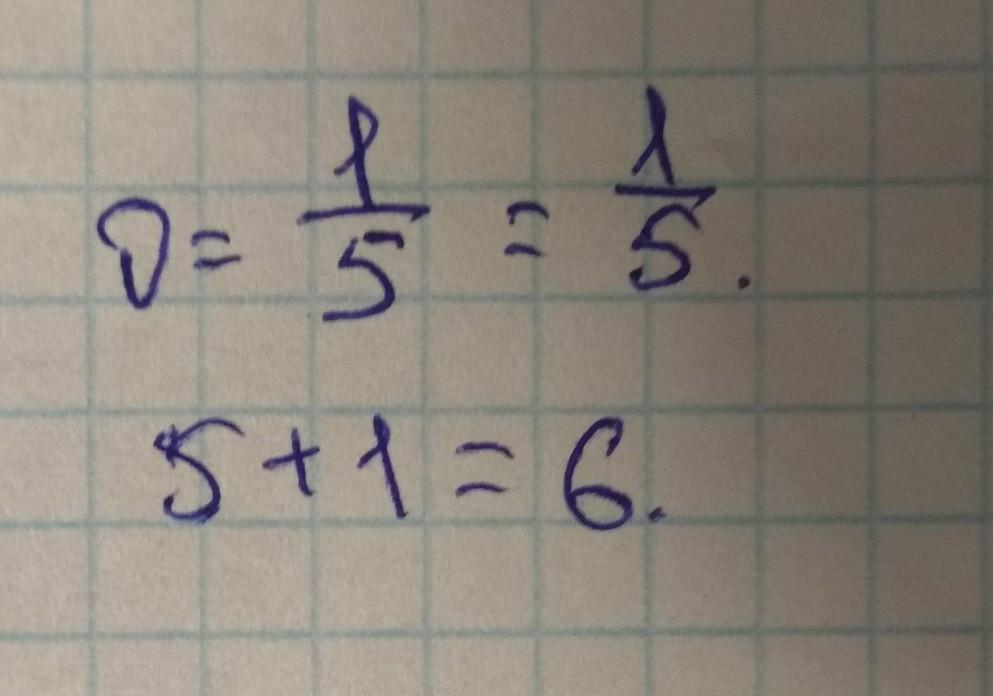 υ = 1/5 = 1/5.
5 + 1 = 6.